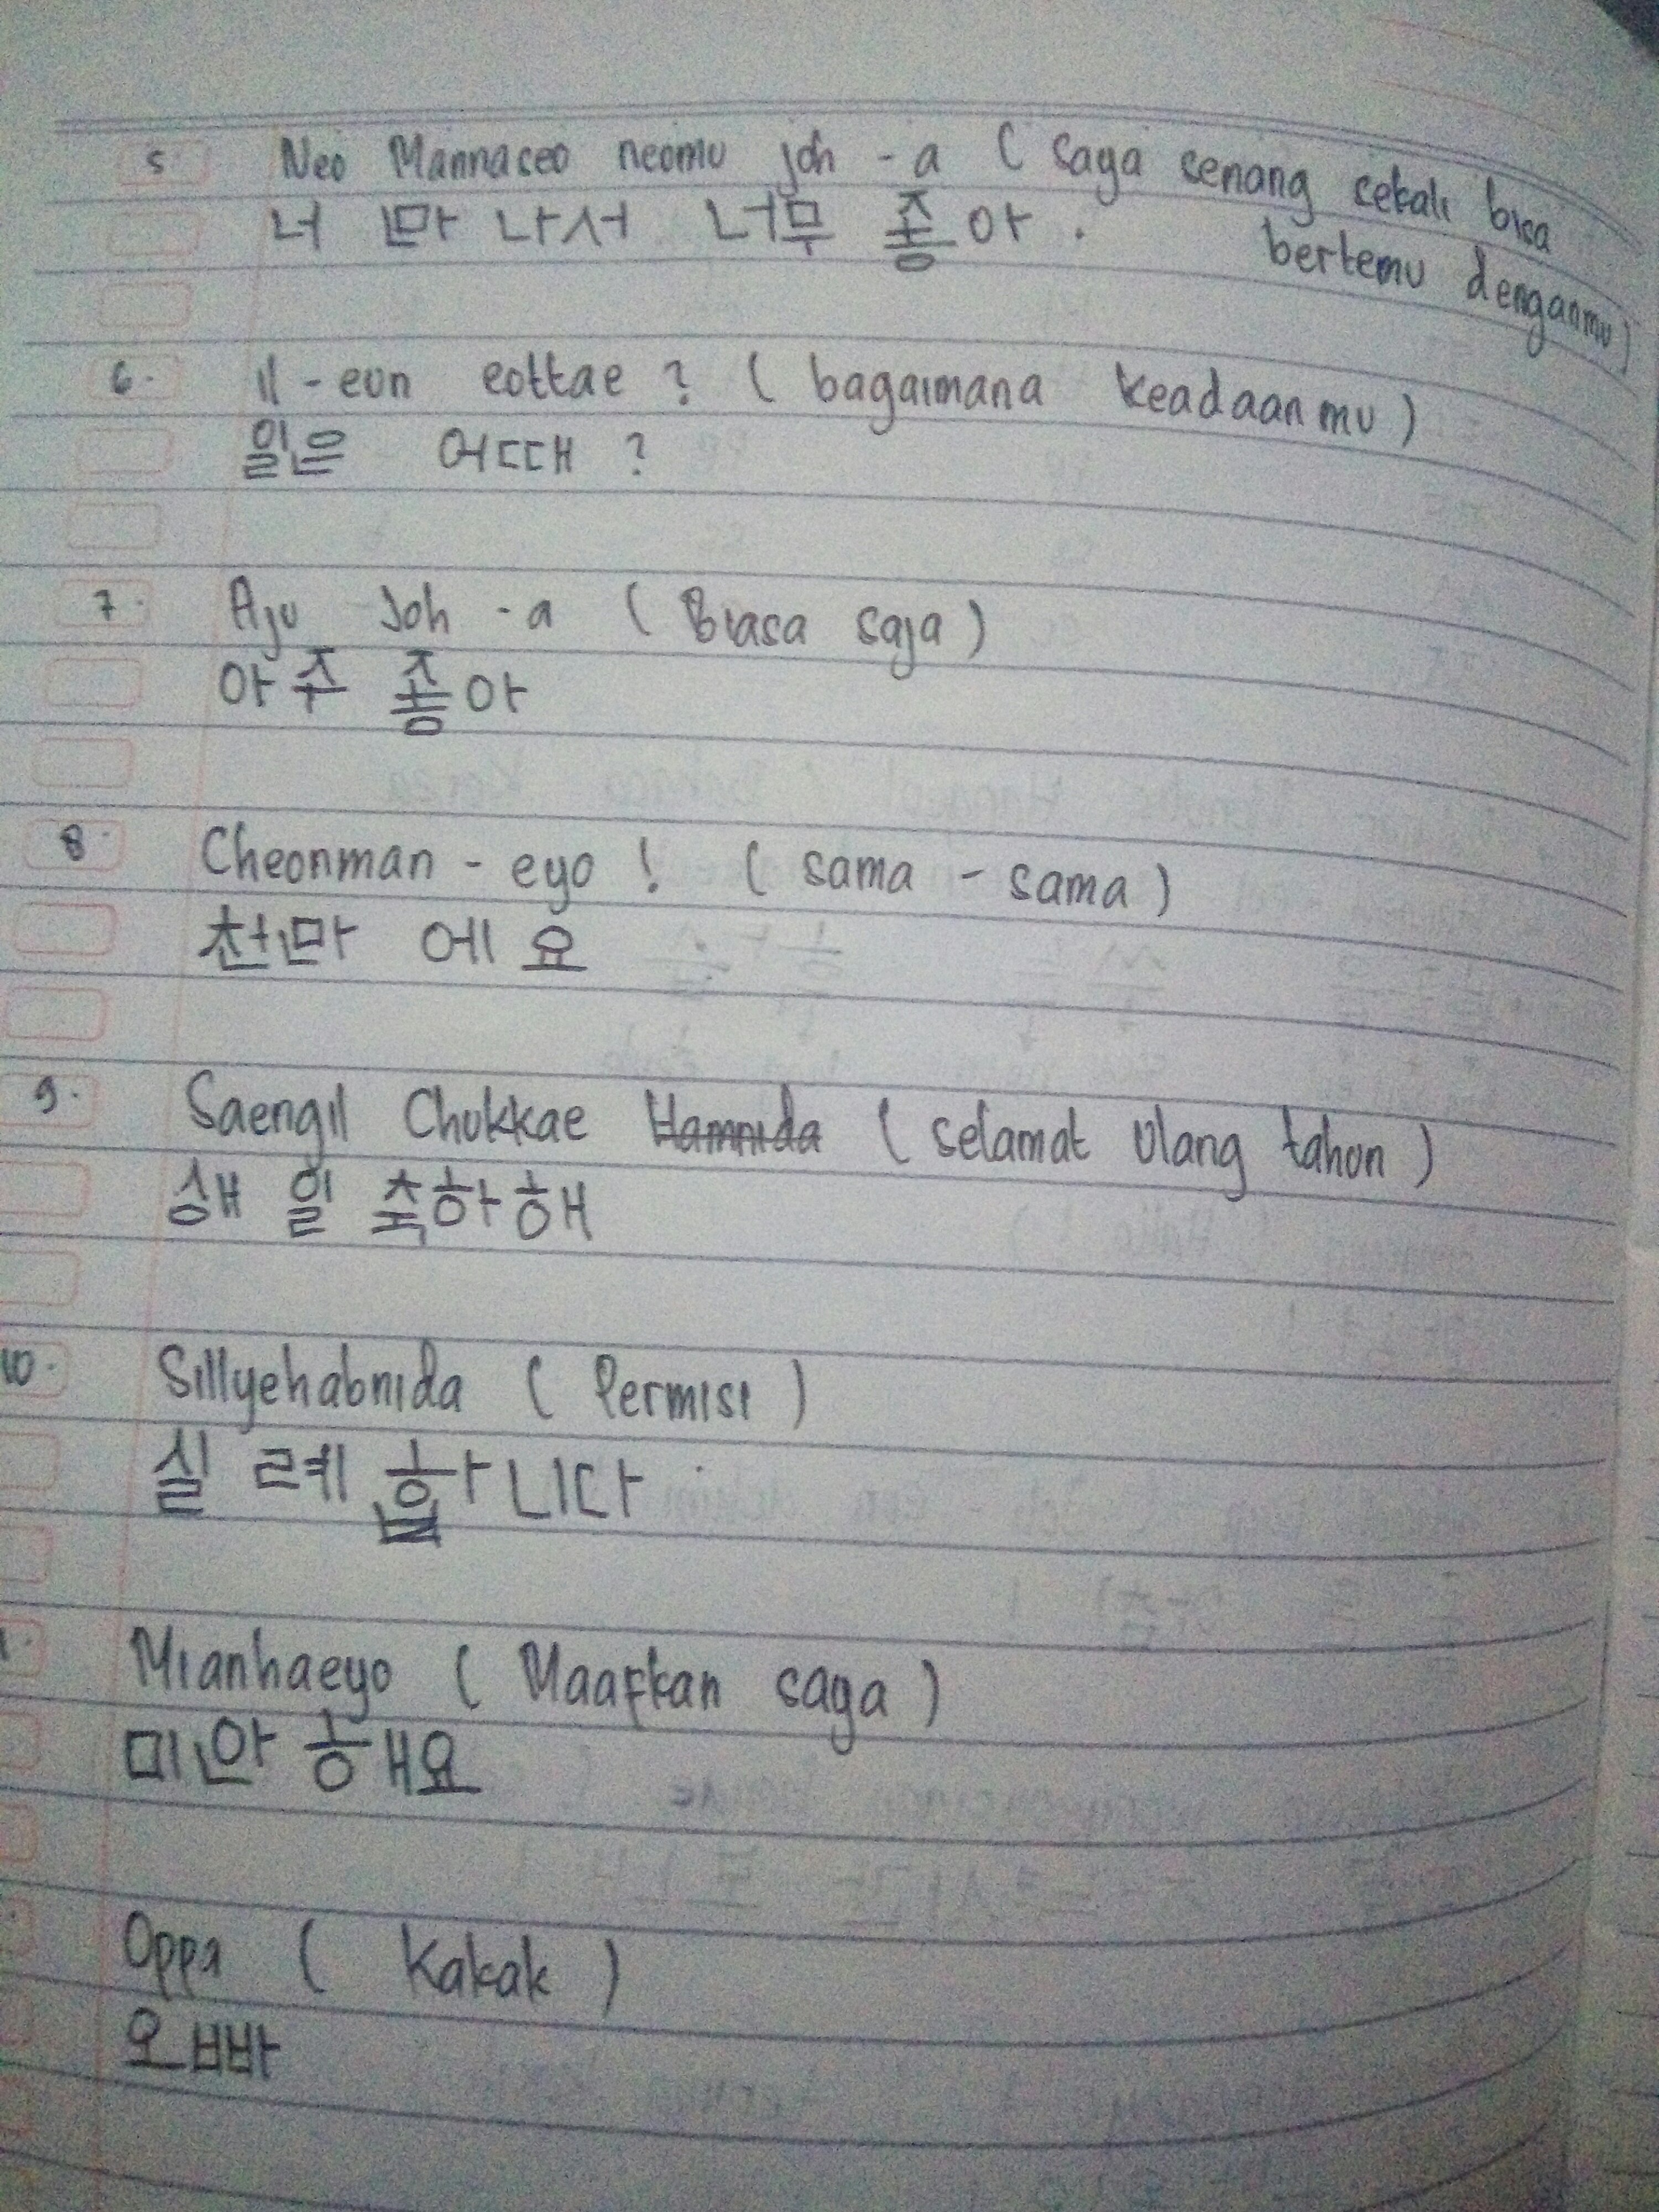 5. Neo Mannaseo neomu joh - a ( Saya senang sekali bisa
bertemu denganmu )
너 만 나서 너무 좋아 .
6. il - eun eottae ? ( bagaimana keadaanmu )
일은 어때 ?
7. Aju Joh - a ( Biasa saja )
아주 좋아
8. Cheonman - eyo ! ( sama - sama )
천만 에 요
9. Saengil Chukkae Hamnida ( selamat ulang tahun )
생 일 축하해
10. Sillyehabnida ( Permisi )
실 례 합니다
Mianhaeyo ( Maafkan saya )
미안 해요
Oppa ( Kakak )
오빠